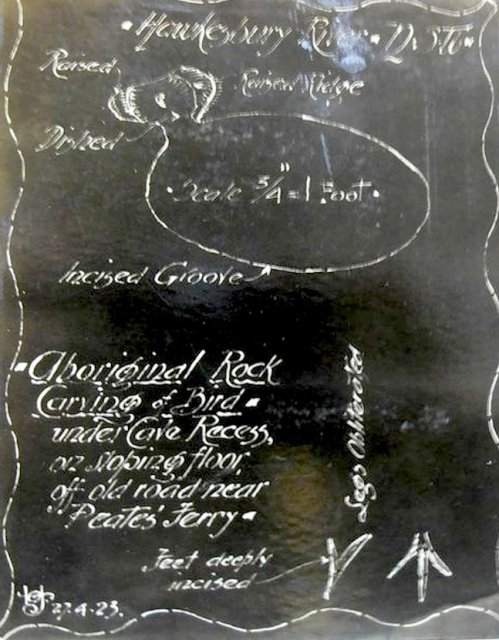 • Hawkesbury River • N.S.W. •
Raised
Raised Ridge
Dished
• Scale 3/4" = 1 Foot •
Incised Groove
Aboriginal Rock
Carving of Bird
under Cave Recess,
on sloping floor,
off old road near
"Peates' Ferry
Legs Obliterated
Feet deeply
incised
22.4.23.